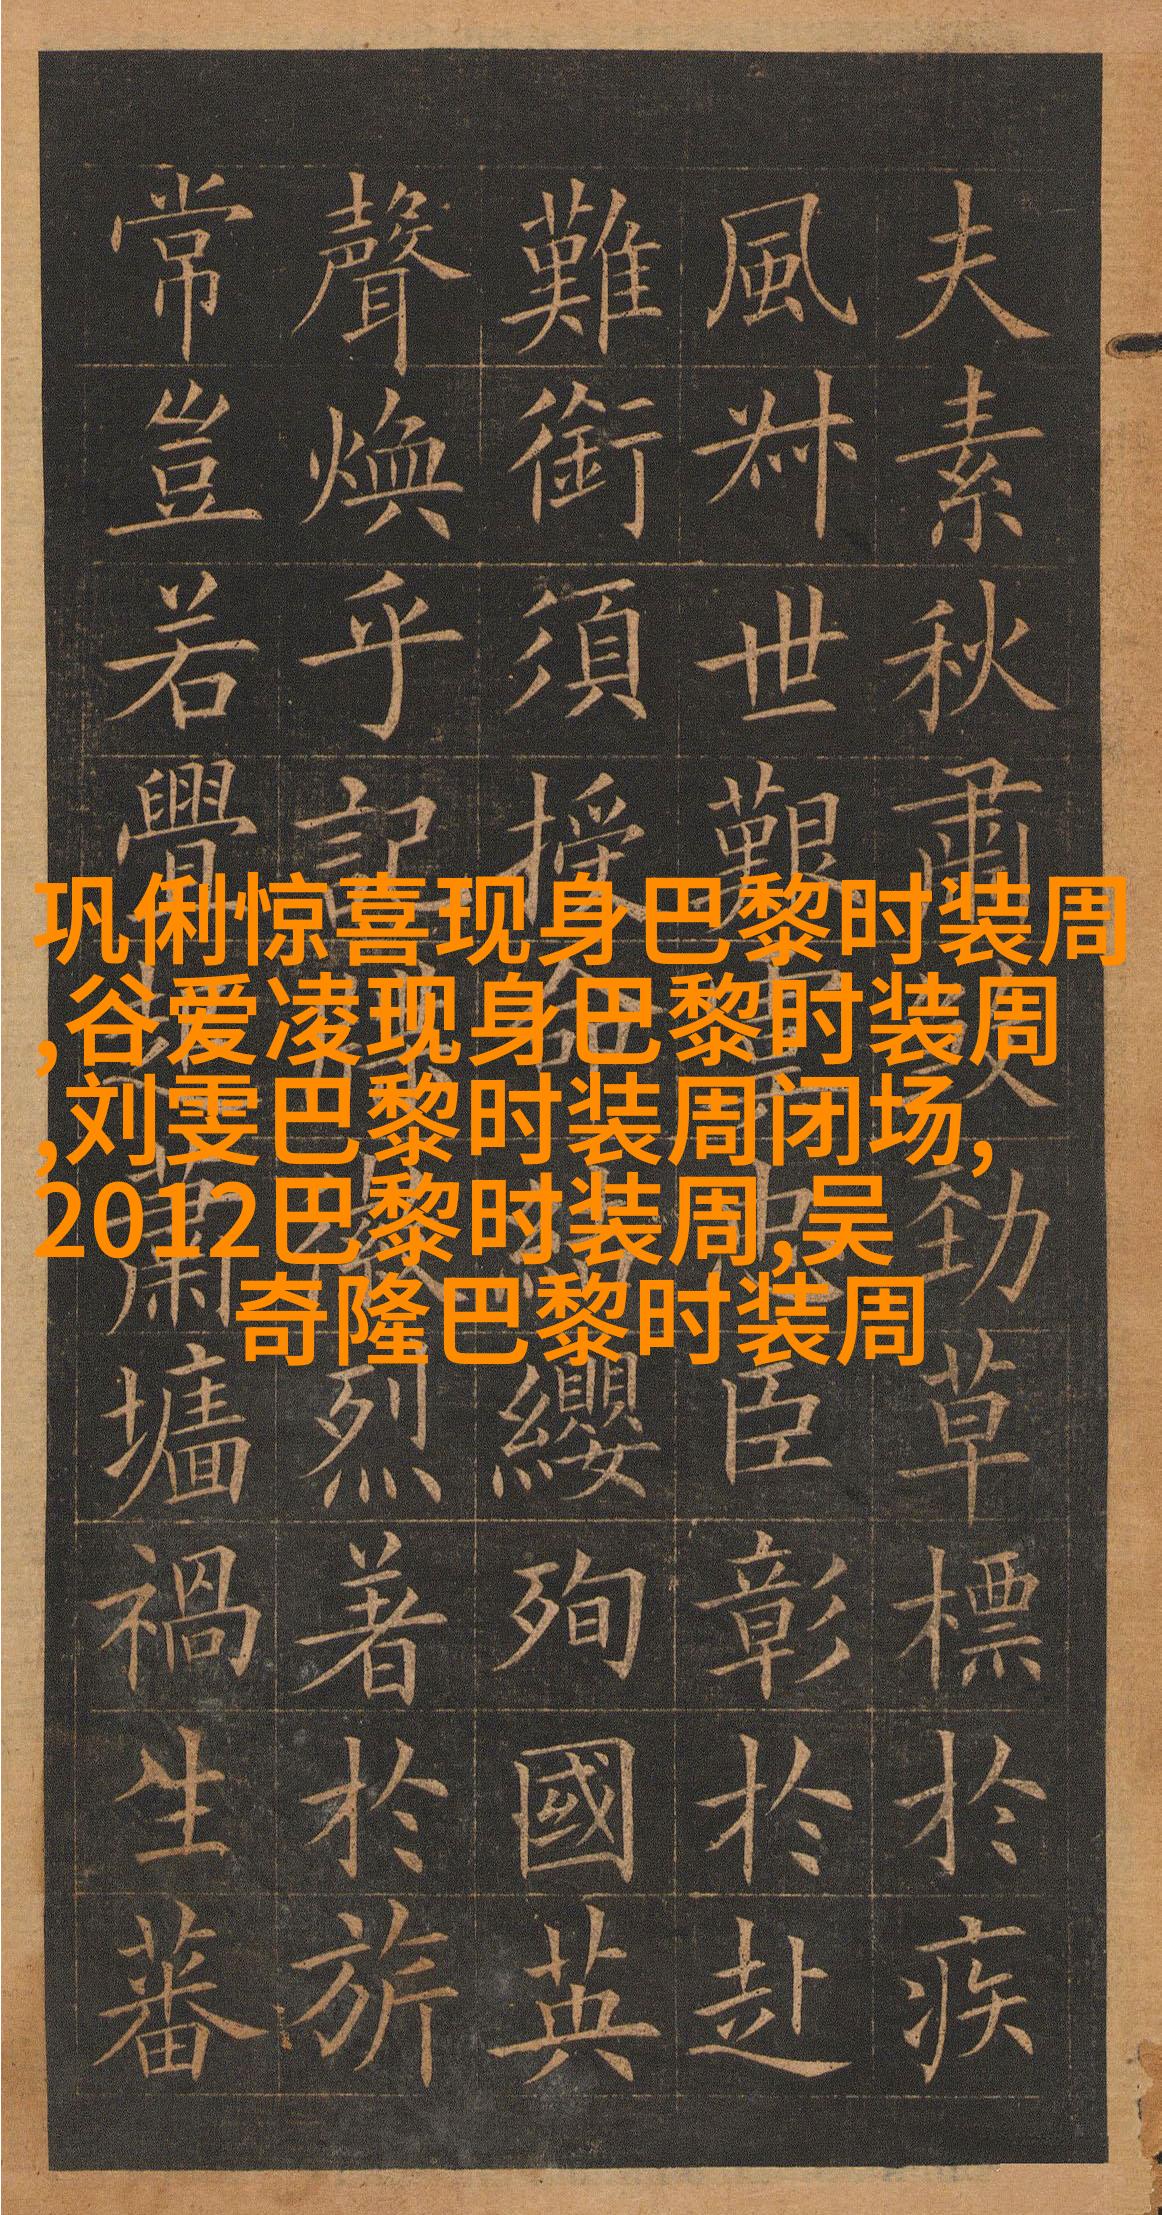 夫素秋肅勁草標於疾
風叔世艱臣彰於赴
難銜須授命纓殉國英
聲煥乎記烈著於旂
常豈若釁蕭墻禍生蕃
巩俐惊喜现身巴黎时装周
,谷爱凌现身巴黎时装周
,刘雯巴黎时装周闭场,
2012巴黎时装周,吴
奇隆巴黎时装周